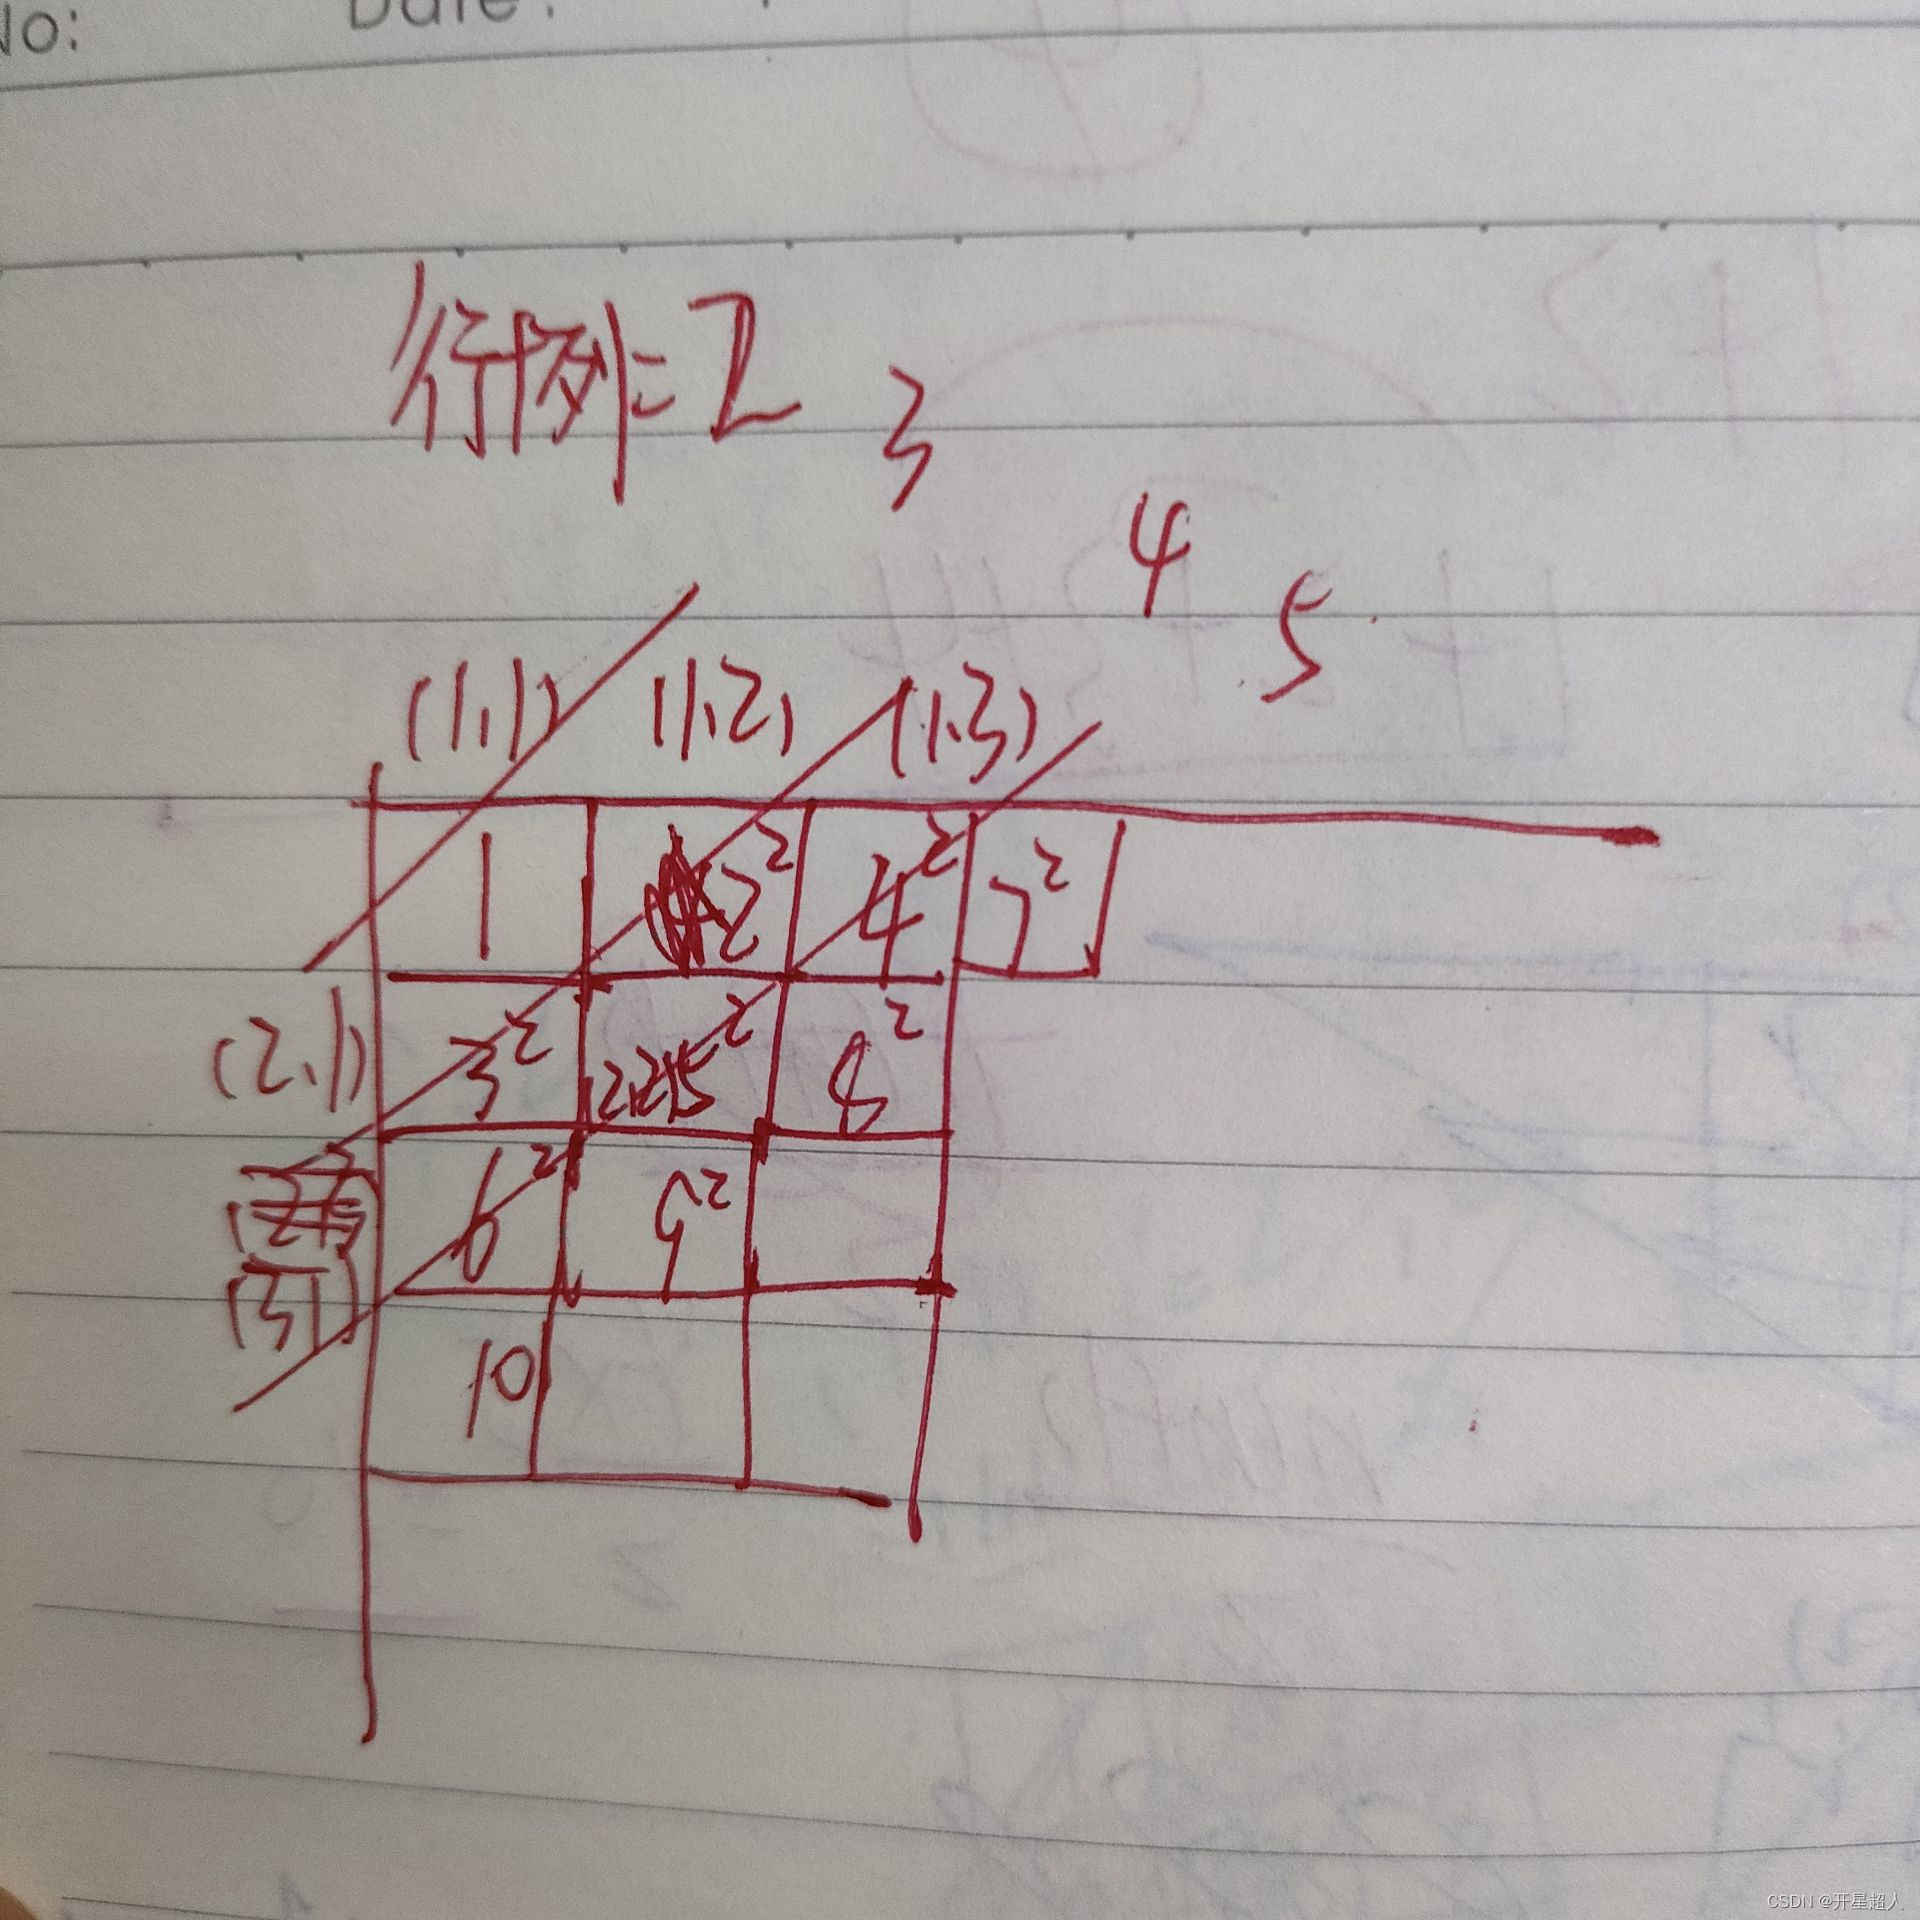 No: Date:
行列=2 3
4
5
(1,1) (1,2) (1,3)
1 2² 4² 7²
(2,1) 3² 2,2 5² 8²
6² 9²
(3,1)
10
CSDN @开星超人